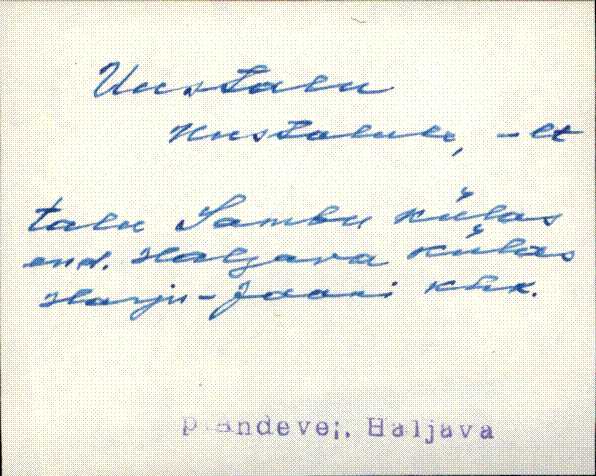 Uustalu
Uustalule, -lt
talu Sambu külas
end. Haljava külas
Harju-Jaani khk.
P. Andevei, Haljava